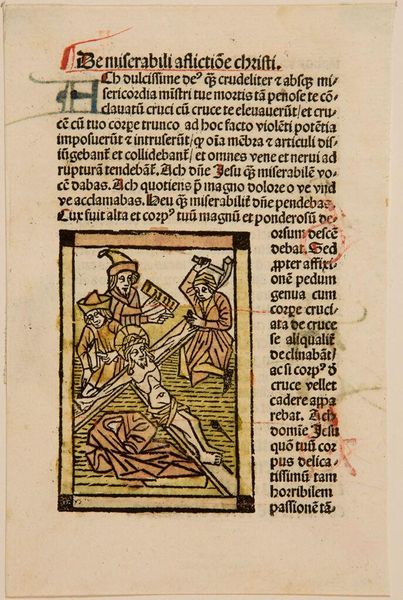 De miserabili aflictiõe christi.
Ach dulcissime de⁹ q̄; crudeliter ⁊ absq; mi⸗
sericordia mĩstri tue mortis tā penose te cō⸗
clauatū cruci cū cruce te eleuauerūt/et cru⸗
cē cū tuo corpe trunco ad hoc facto violēti potētia
imposuerūt ⁊ intruserūt/qꝛ oīa mēbra ⁊ articuli dis⸗
iūgebant̄ et collidebant̄/et omnes vene et nerui ad
rupturā tendebāt. Ach dñe Jesu q̄; miserabilē vo⸗
cē dabas. Ach quotiens p̄ magno dolore o ve vnd
ve acclamabas. Heu q̄; miserabilit̄ dñe pendebas.
Crux fuit alta et corp⁹ tuū magnū et ponderosū de⸗
orsum descē
debat. Sed
ꝓpter affixi⸗
onē pedum
genua cum
corpe cruci⸗
ata de cruce
se aliqualit̄
declinabāt/
ac si corp⁹ ď
cruce vellet
cadere appa
rebat. Ach
domīe Jesu
quō tuū cor
pus delica⸗
tissimū tam
horribilem
passionē tā⸗